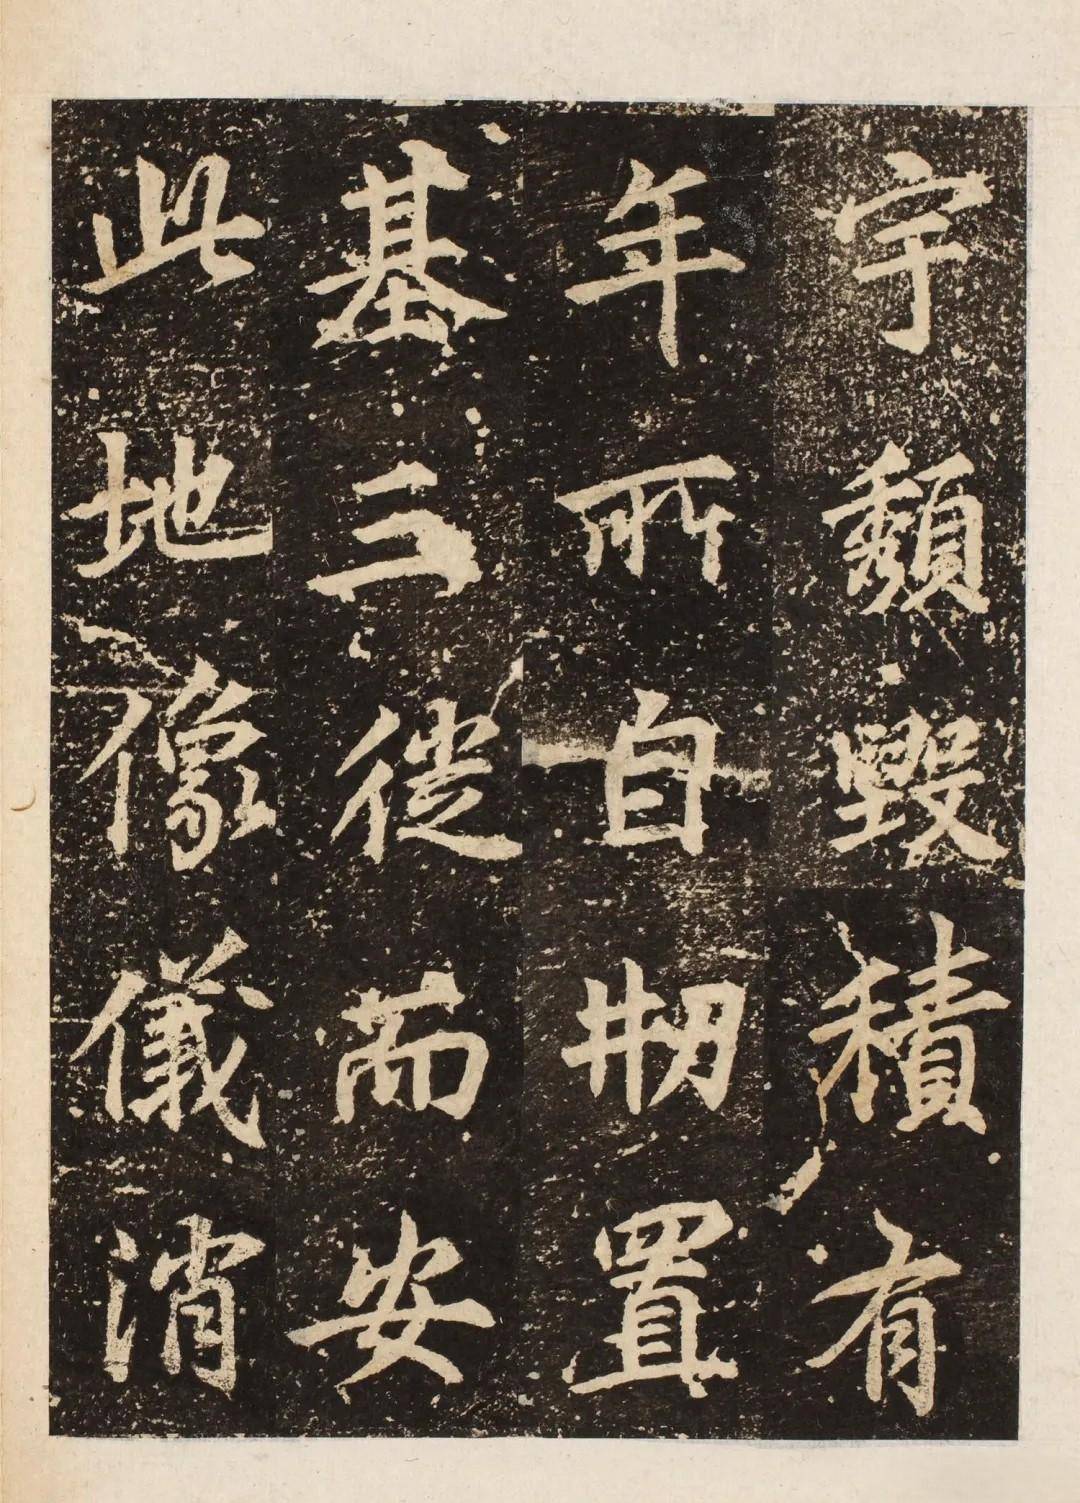 宇頽毀積有
年所自刱置
基三徙而安
此地像儀消